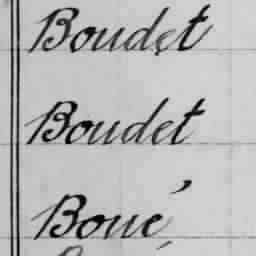 Boudet
Boudet
Boué